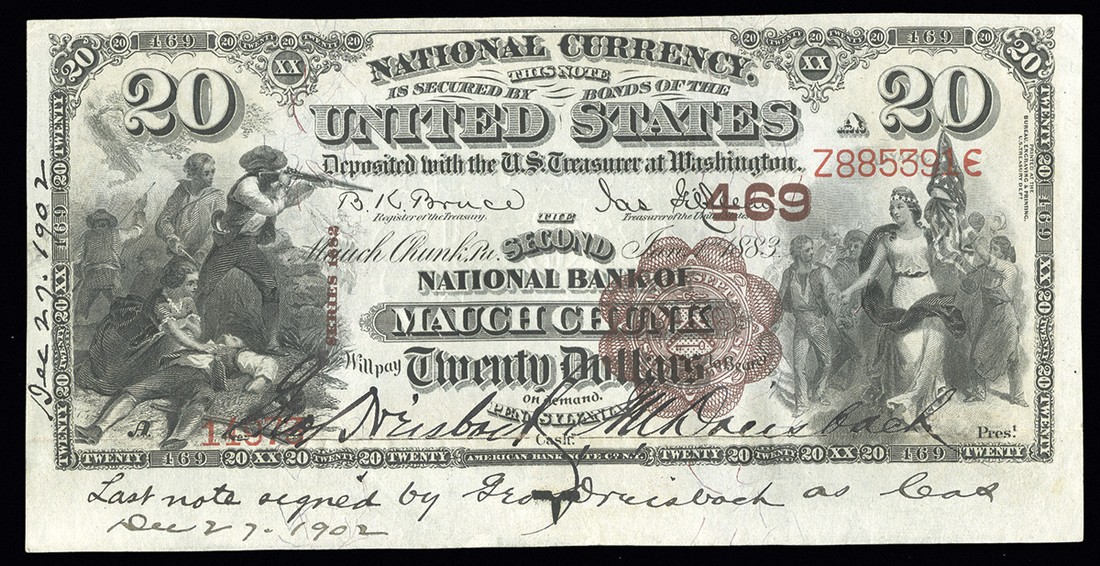 20 469 20 TWENTY 20 TWENTY 20 469 20
XX XX
20 20
NATIONAL CURRENCY.
THIS NOTE
IS SECURED BY BONDS OF THE
UNITED STATES
A
Deposited with the U.S. Treasurer at Washington.
Z885391E
PRINTED AT THE
BUREAU, ENGRAVING & PRINTING,
U.S. TREASURY DEPT.
B. K. Bruce Jas Gilfillan
469
Register of the Treasury. Treasurer of the United States
THE
Mauch Chunk, Pa. SECOND 1883.
SERIES 1882
NATIONAL BANK OF
MAUCH CHUNK
Will pay Twenty Dollars to Bearer
on demand.
PENNSYLVANIA
A.
Geo Dreisbach
Cash.r
Dreisbach
Pres.t
TWENTY 469 20 XX 20 TWENTY 20 AMERICAN BANK NOTE CO. N.Y. 20 TWENTY 20 XX 20 469 TWENTY
Dec 27. 1902
Last note signed by Geo Dreisbach as Cas
Dec 27. 1902